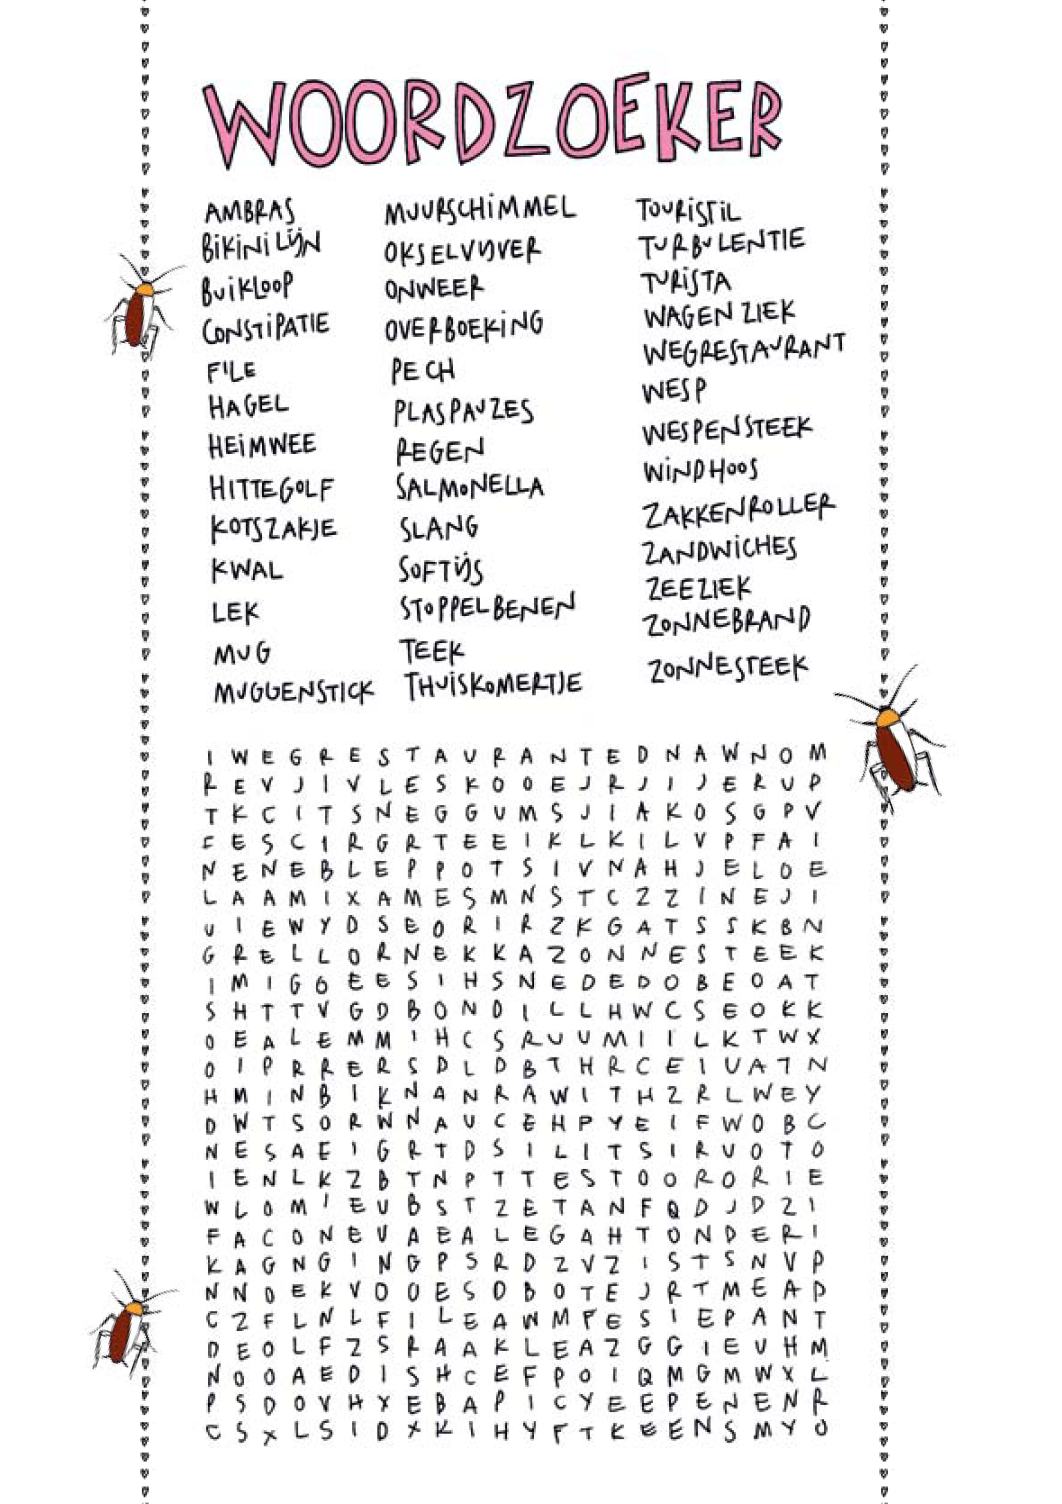 WOORDZOEKER
AMBRAS
BIKINI LIJN
BUIKLOOP
CONSTIPATIE
FILE
HAGEL
HEIMWEE
HITTEGOLF
KOTSZAKJE
KWAL
LEK
MUG
MUGGENSTICK
MUURSCHIMMEL
OKSELVIJVER
ONWEER
OVERBOEKING
PECH
PLASPAUZES
REGEN
SALMONELLA
SLANG
SOFTIJS
STOPPELBENEN
TEEK
THUISKOMERTJE
TOURISTIL
TURBULENTIE
TURISTA
WAGENZIEK
WEGRESTAURANT
WESP
WESPENSTEEK
WINDHOOS
ZAKKENROLLER
ZANDWICHES
ZEEZIEK
ZONNEBRAND
ZONNESTEEK
I W E G R E S T A U R A N T E D N A W N O M
R E V J I V L E S K O O E J R J I J E R U P
T K C I T S N E G G U M S J I A K O S G P V
F E S C I R G R T E E I K L K I L V P F A I
N E N E B L E P P O T S I V N A H J E L O E
L A A M I X A M E S M N S T C Z Z I N E J I
U I E W Y D S E O R I R Z K G A T S S K B N
G R E L L O R N E K K A Z O N N E S T E E K
I M I G O E E S I H S N E D E D O B E O A T
S H T T V G D B O N D I L L H W C S E O K K
O E A L E M M I H C S R U U M I I L K T W X
O I P R R E R S D L D B T H R C E I U A T N
H M I N B I K N A N R A W I T H Z R L W E Y
D W T S O R W N A U C E H P Y E I F W O B C
N E S A E I G R T D S I L I T S I R U O T O
I E N L K Z B T N P T T E S T O O R O R I E
W L O M I E U B S T Z E T A N F Q D J D Z I
F A C O N E V A E A L E G A H T O N D E R I
K A G N G I N G P S R D Z V Z I S T S N V P
N N D E K V O O E S O B O T E J R T M E A D
C Z F L N L F I L E A W M P E S I E P A N T
D E O L F Z S R A A K L E A Z G G I E U H M
N O O A E D I S H C E F P O I Q M G M W X L
P S D O V H Y E B A P I C Y E E P E N E N R
C S X L S I D X K I H Y F T K E E N S M Y O